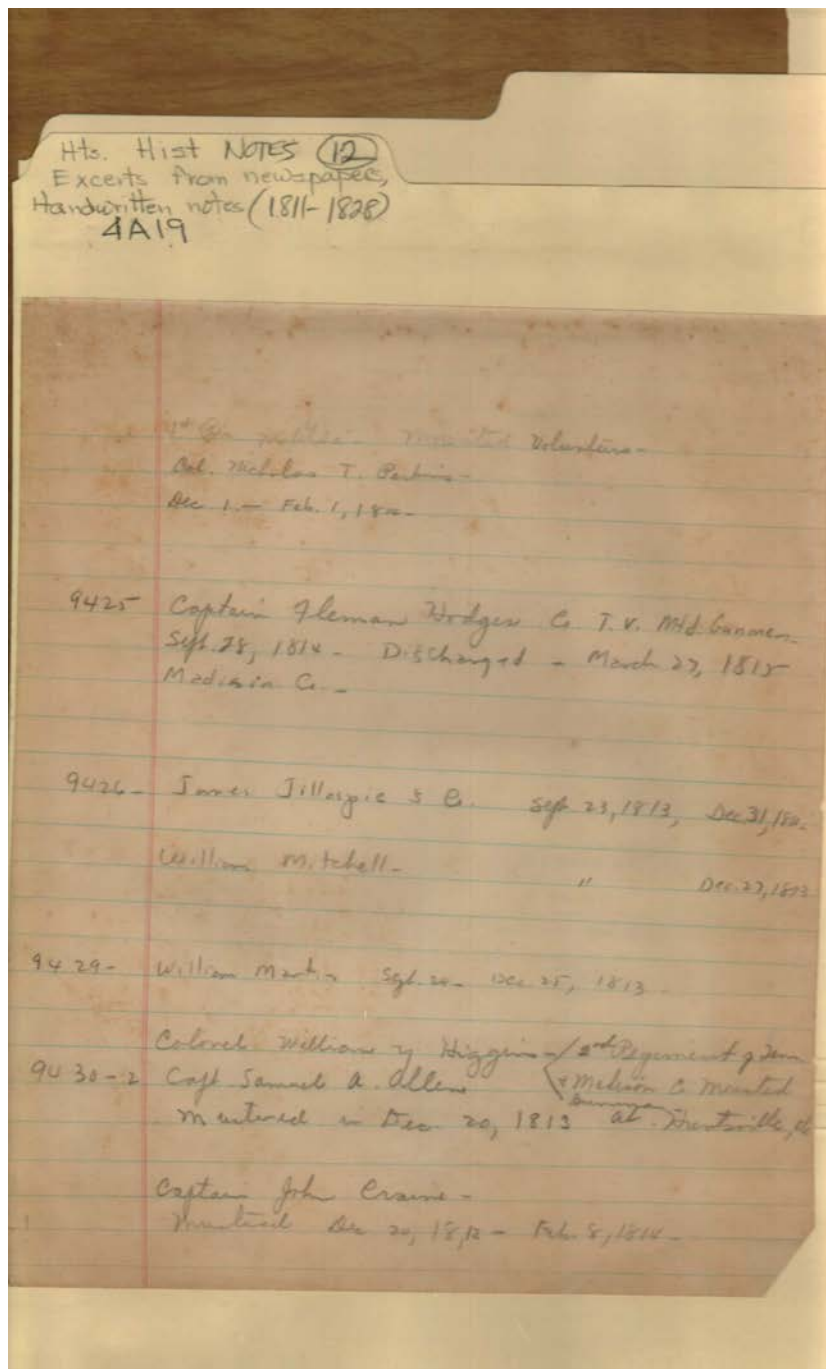 Hts. Hist NOTES (12)
Excerts from newspapers,
Handwritten notes (1811-1828)
4A19
1st Mounted Volunteers -
Col. Nicholas T. Perkins -
Dec 1. - Feb. 1,
9425 Captain Fleman Hodges Co T. V. Mtd. Gunmen.
Sept. 28, 1814 - Discharged - March 27, 1815
Madison Co. -
9426 - James Gillaspie's Co. Sept 23, 1813, Dec 31,
William Mitchell - " Dec. 27, 1813
9429 - William Martin Sept. 24 - Dec 25, 1813 -
Colonel William Y Higgins - 2nd Regiment of Tenn
9430-2 Capt Samuel A. Allen & Madison Co Mounted
Gunmen
Mustered in Dec 20, 1813 at Huntsville,
Captain John Craine -
Mustered Dec 20, 1813 - Feb. 8, 1814 -